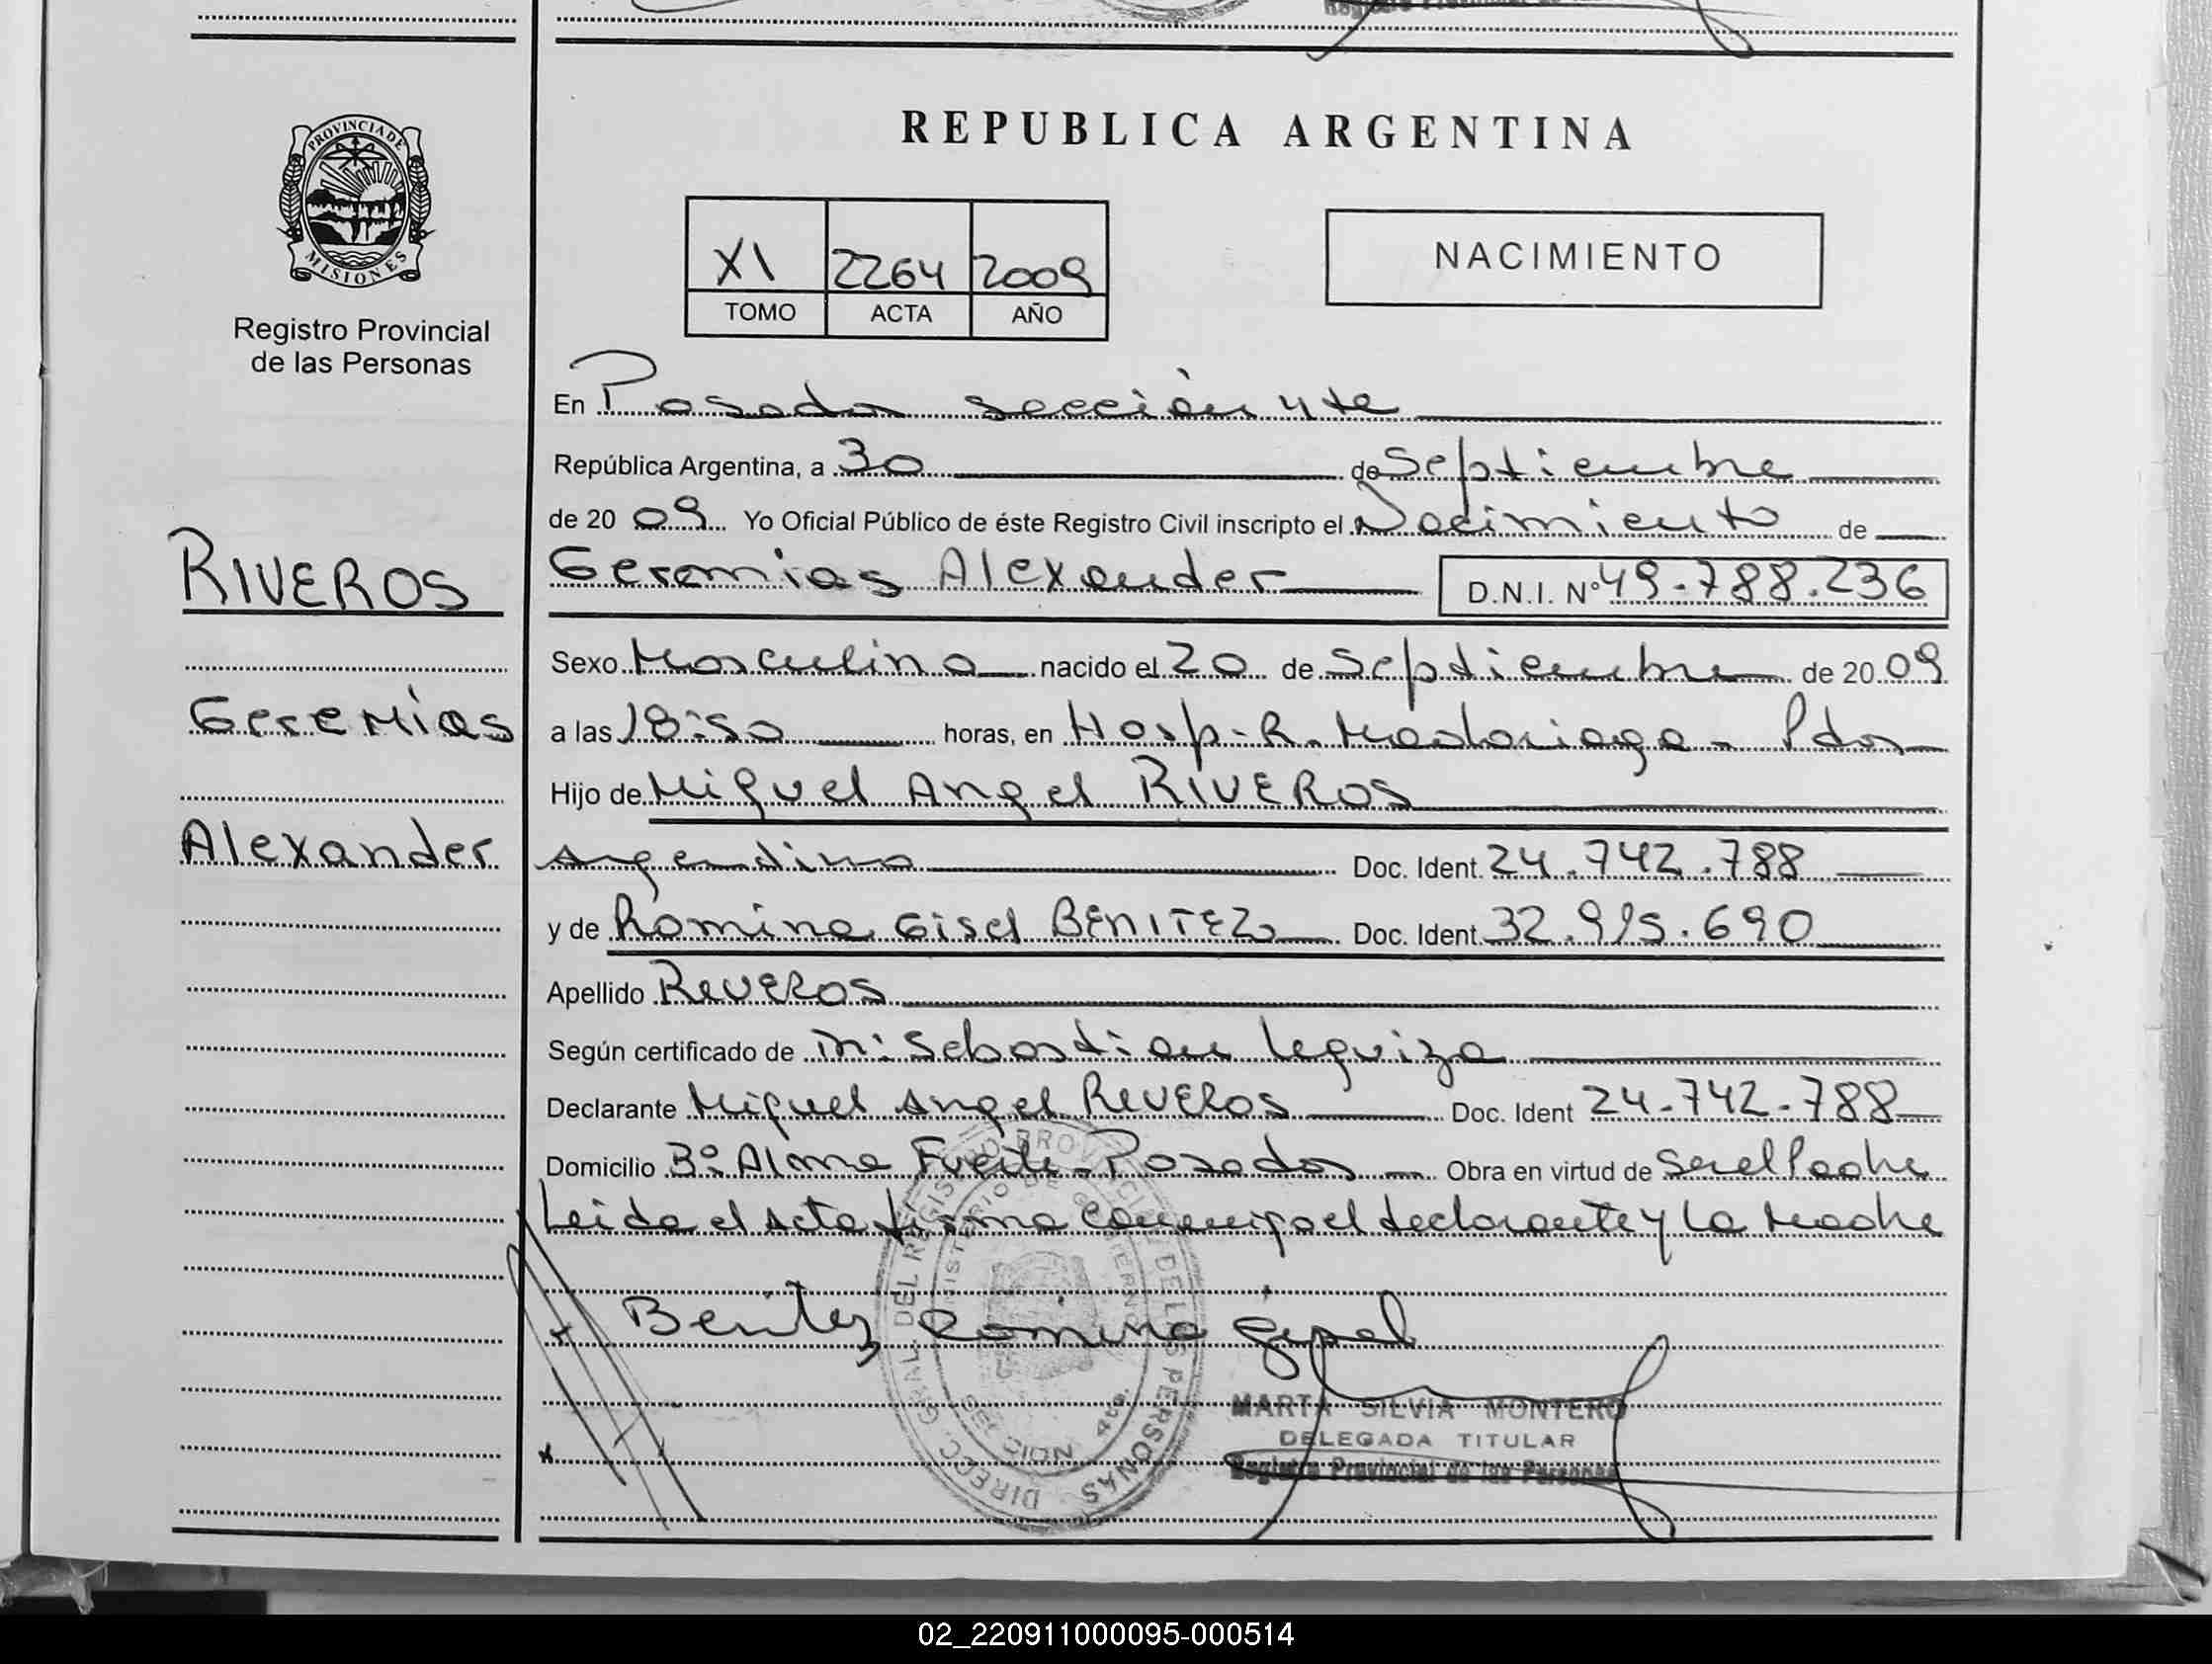 REPUBLICA ARGENTINA
PROVINCIA DE
MISIONES
Registro Provincial
de las Personas
XI 2264 2009
TOMO ACTA AÑO
NACIMIENTO
RIVEROS
Geremias
Alexander
En Posadas sección 4ta
República Argentina, a 30 de Septiembre
de 2009 Yo Oficial Público de éste Registro Civil inscripto el Nacimiento de
Geremias Alexander D.N.I. Nº 49.788.236
Sexo Masculino nacido el 20 de Septiembre de 2009
a las 18:50 horas, en Hosp. R. Madariaga - Pdas
Hijo de Miguel Angel RIVEROS
Argentino Doc. Ident. 24.742.788
y de Romina Gisel BENITEZ Doc. Ident. 32.915.690
Apellido RIVEROS
Según certificado de Sebastian Leguiza
Declarante Miguel Angel RIVEROS Doc. Ident 24.742.788
Domicilio Bº Alma Fuerte - Posadas Obra en virtud de ser el Padre
Leida el Acta firma conmigo el declarante y la Madre
Benitez Romina Gisel
DIRECC. GRAL. DEL REGISTRO PROVINCIAL DE LAS PERSONAS
MINISTERIO DE GOBIERNO
MARTA SILVIA MONTERO
DELEGADA TITULAR
Registro Provincial de las Personas
02_220911000095-000514